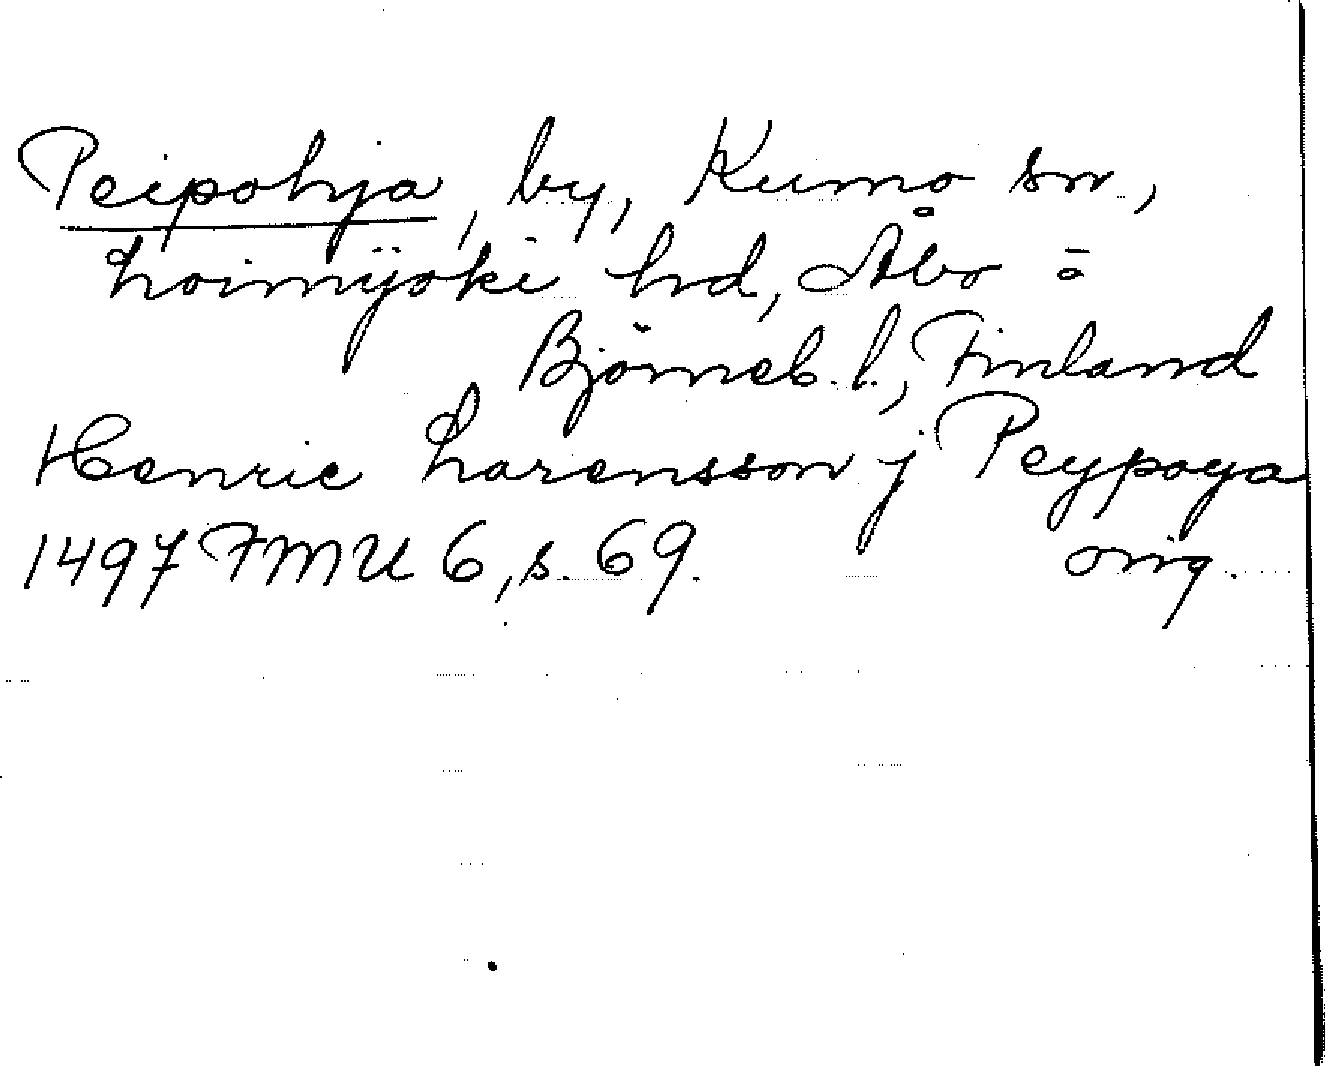 Peipohja, by, Kumo sn.,
Loimijoki hd, Åbo o
Björneb. l., Finland
Henric Larensson j Peypoya
1497 FMU 6, s. 69. orig.